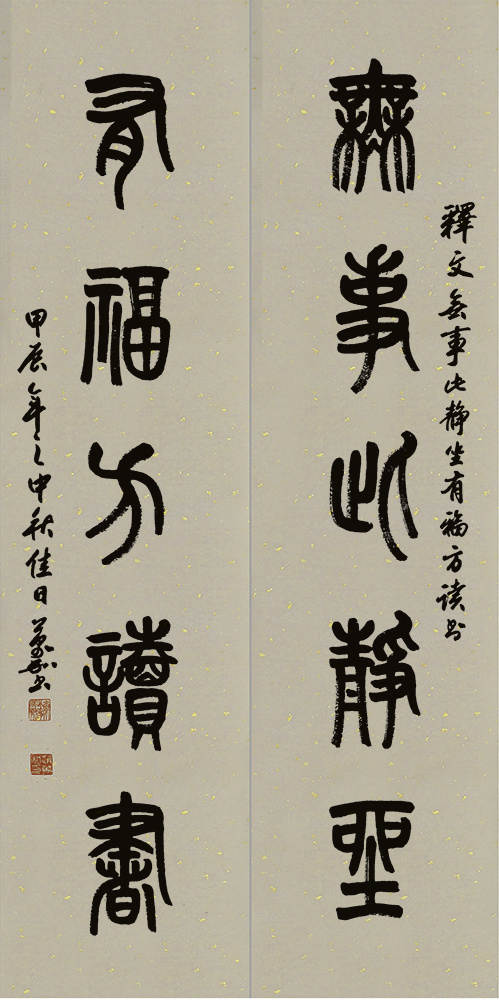 釋文無事此靜坐有福方读书
無事此靜坐
有福方讀書
甲辰年之中秋佳日